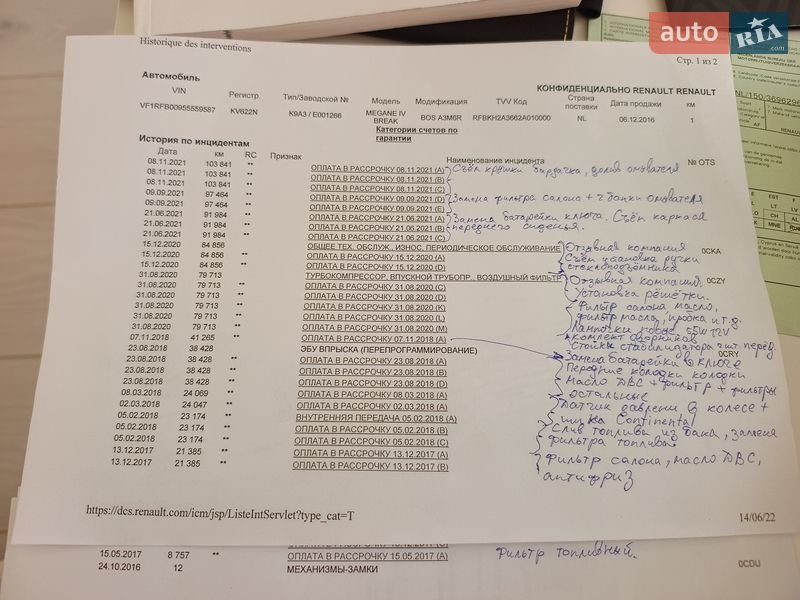 auto RIA.com
Historique des interventions
Стр. 1 из 2
Автомобиль
КОНФИДЕНЦИАЛЬНО RENAULT RENAULT
VIN Регистр. Тип/Заводской № Модель Модификация TVV Код Страна поставки Дата продажи км
VF1RFB00955559587 KV622N K9A3 / E001266 MEGANE IV BREAK BOS A3M6R RFBKH2A3662A010000 NL 06.12.2016 1
Категории счетов по гарантии
История по инцидентам
Дата км RC Признак Наименование инцидента № OTS
08.11.2021 103 841 ** ОПЛАТА В РАССРОЧКУ 08.11.2021 (A) Съём крышки бардачка, долив омывателя
08.11.2021 103 841 ** ОПЛАТА В РАССРОЧКУ 08.11.2021 (B)
08.11.2021 103 841 ** ОПЛАТА В РАССРОЧКУ 08.11.2021 (C)
09.09.2021 97 464 ** ОПЛАТА В РАССРОЧКУ 09.09.2021 (D) Замена фильтра салона + 2 банки омывателя
09.09.2021 97 464 ** ОПЛАТА В РАССРОЧКУ 09.09.2021 (E)
21.06.2021 91 984 ** ОПЛАТА В РАССРОЧКУ 21.06.2021 (A) Замена батарейки ключа. Съём каркаса
21.06.2021 91 984 ** ОПЛАТА В РАССРОЧКУ 21.06.2021 (B) переднего сиденья.
21.06.2021 91 984 ** ОПЛАТА В РАССРОЧКУ 21.06.2021 (C)
15.12.2020 84 856 ОБЩЕЕ ТЕХ. ОБСЛУЖ., ИЗНОС, ПЕРИОДИЧЕСКОЕ ОБСЛУЖИВАНИЕ Отзывная компания 0CKA
15.12.2020 84 856 ** ОПЛАТА В РАССРОЧКУ 15.12.2020 (A) Съём установка ручки
15.12.2020 84 856 ** ОПЛАТА В РАССРОЧКУ 15.12.2020 (D) стеклоподъемника
31.08.2020 79 713 ТУРБОКОМПРЕССОР, ВПУСКНОЙ ТРУБОПР., ВОЗДУШНЫЙ ФИЛЬТР Отзывная компания, 0CZY
31.08.2020 79 713 ** ОПЛАТА В РАССРОЧКУ 31.08.2020 (C) Установка решётки.
31.08.2020 79 713 ** ОПЛАТА В РАССРОЧКУ 31.08.2020 (D) Фильтр салона, масло,
31.08.2020 79 713 ** ОПЛАТА В РАССРОЧКУ 31.08.2020 (K) фильтр масла, пробка и т.д.
31.08.2020 79 713 ** ОПЛАТА В РАССРОЧКУ 31.08.2020 (L) Лампочки новые 55W 12V
31.08.2020 79 713 ** ОПЛАТА В РАССРОЧКУ 31.08.2020 (M) Комплект дворников
07.11.2018 41 265 ** ОПЛАТА В РАССРОЧКУ 07.11.2018 (A) Стойки стабилизатора 2 шт. перед.
23.08.2018 38 428 ЭБУ ВПРЫСКА (ПЕРЕПРОГРАММИРОВАНИЕ) Замена батарейки в ключе 0CRY
23.08.2018 38 428 ** ОПЛАТА В РАССРОЧКУ 23.08.2018 (A) Передние колодки колодки
23.08.2018 38 428 ** ОПЛАТА В РАССРОЧКУ 23.08.2018 (B) Масло ДВС + фильтр + фильтры
23.08.2018 38 428 ** ОПЛАТА В РАССРОЧКУ 23.08.2018 (D) остальные
08.03.2018 24 069 ** ОПЛАТА В РАССРОЧКУ 08.03.2018 (A) Датчик давлени в колесе +
02.03.2018 24 047 ** ОПЛАТА В РАССРОЧКУ 02.03.2018 (A) шинка Continental
05.02.2018 23 174 ** ВНУТРЕННЯЯ ПЕРЕДАЧА 05.02.2018 (A) Слив топлива из бака, замена
05.02.2018 23 174 ** ОПЛАТА В РАССРОЧКУ 05.02.2018 (B) фильтра топлива.
05.02.2018 23 174 ** ОПЛАТА В РАССРОЧКУ 05.02.2018 (C)
13.12.2017 21 385 ** ОПЛАТА В РАССРОЧКУ 13.12.2017 (A) Фильтр салона, масло ДВС,
13.12.2017 21 385 ** ОПЛАТА В РАССРОЧКУ 13.12.2017 (B) антифриз
https://dcs.renault.com/icm/jsp/ListeIntServlet?type_cat=T
14/06/22
15.05.2017 8 757 ** ОПЛАТА В РАССРОЧКУ 15.05.2017 (A) Фильтр топливный.
24.10.2016 12 МЕХАНИЗМЫ-ЗАМКИ 0CDU